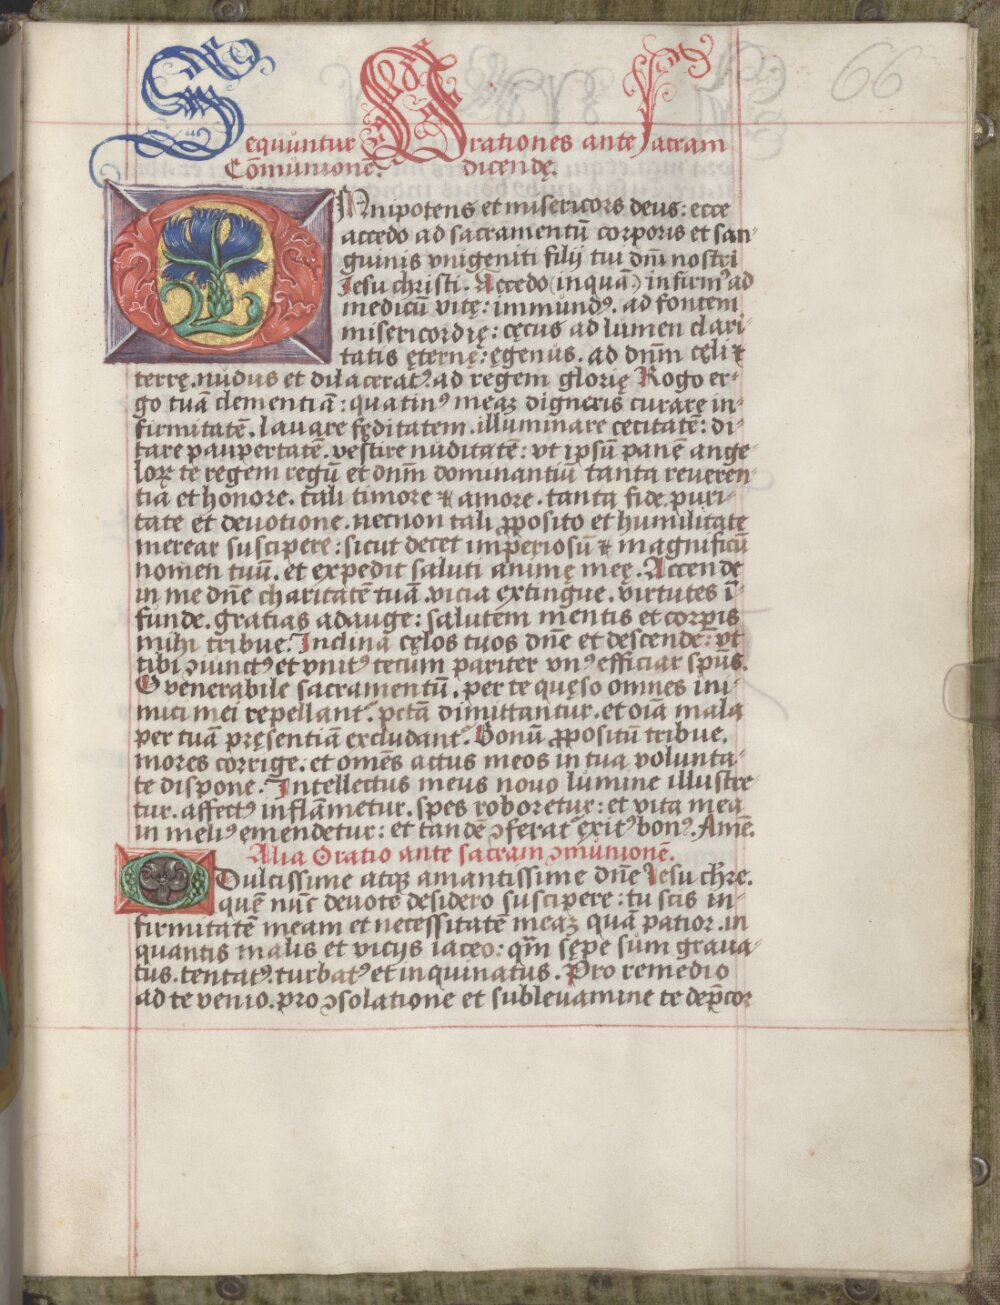 66
Sequuntur Orationes ante sacram
Cōmunionē. dicendę.
OMnipotens et misericors deus: ecce
accedo ad sacramentū corporis et san-
guinis vnigeniti filij tui dn̄i nostri
Jesu christi. Accedo (inquā) infirmꝰ ad
medicū vitę: immundꝰ. ad fontem
misericordię: cęcus ad lumen clari-
tatis ęternę: ęgenus. ad dnm̄ cęli ⁊
terrę. nudus et dilaceratꝰ. ad regem glorię Rogo er-
go tuā clementiā: quatinꝰ meaꝫ digneris curare in-
firmitatē. lauare fęditatem. illuminare cecitatē: di-
tare paupertatē. vestire nuditatē: vt ipsū panē ange-
loꝝ te regem regū et dnm̄ dominantiū tanta reueren-
tia et honore. tali timore ⁊ amore. tanta fide. puri-
tate et deuotione. necnon tali ꝓposito et humilitate
merear suscipere: sicut decet imperiosū ⁊ magnificū
nomen tuū. et expedit saluti animę meę. Accende
in me dn̄e charitatē tuā. vicia extingue. virtutes ī-
funde. gratias adauge: salutem mentis et corꝑis
mihi tribue. Inclina cęlos tuos dn̄e et descende: vt
tibi ꝯiunctꝰ et vnitꝰ tecum pariter vnꝰ efficiar spūs.
O venerabile sacramentū. per te quęso omnes ini-
mici mei repellant᷑. pctā dimittantur. et oīa mala
per tuā pręsentiā excludant᷑. Bonū ꝓpositū tribue.
mores corrige. et omēs actus meos in tua volunta-
te dispone. Intellectus meus nouo lumine illustre-
tur. affectꝰ inflāmetur. spes roboretur: et vita mea
in meliꝰ emendetur: et tandē ꝯferat᷑ exitꝰ bonꝰ. Amē.
Alia Oratio ante sacram ꝯmunionē.
O Dulcissime atqꝫ amantissime dn̄e Jesu chr̄e.
quē nūc deuote desidero suscipere: tu scis in-
firmitatē meam et necessitatē meaꝫ quā patior. in
quantis malis et vicijs iaceo: qm̄ sępe sum graua-
tus. tentatꝰ. turbatꝰ et inquinatus. Pro remedio
ad te venio. pro ꝯsolatione et subleuamine te dep̄cor